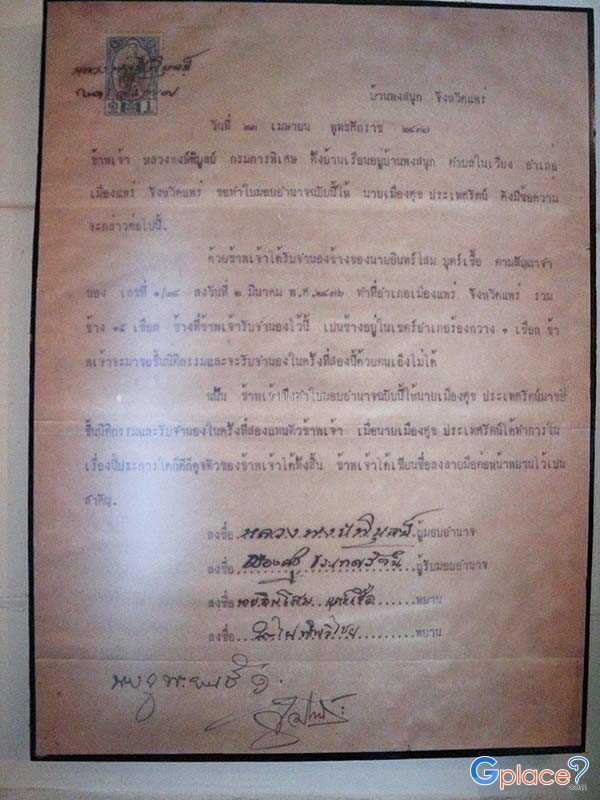 บ้านพงสนุก จังหวัดแพร่
วันที่ ๒๓ เมษายน พุทธศักราช ๒๔๗๗
ข้าพเจ้า หลวงพงษ์พิบูลย์ กรมการพิเศษ ตั้งบ้านเรือนอยู่บ้านพงสนุก ตำบลในเวียง อำเภอ
เมืองแพร่ จังหวัดแพร่ ขอทำใบมอบอำนาจฉบับนี้ให้ นายเมืองศุข ประเทศรัตน์ ดังมีข้อความ
จะกล่าวต่อไปนี้.
ด้วยข้าพเจ้าได้รับจำนองช้างของนายอินทร์โสม บุตร์เชื้อ ตามสัญญาจำ
นอง เลขที่ ลงวันที่ ๒ มีนาคม พ.ศ.๒๔๗๖ ทำที่อำเภอเมืองแพร่ จังหวัดแพร่ รวม
ช้าง เชือก ช้างที่ข้าพเจ้ารับจำนองไว้นี้ เปนช้างอยู่ในเขตร์อำเภอร้องกวาง ๑ เชือก ข้า
พเจ้าจะมาขอขึ้นนิติกรรมและจะรับจำนองในครั้งที่สองนี้ด้วยตนเองไม่ได้
ฉนั้น ข้าพเจ้าจึงทำใบมอบอำนาจฉบับนี้ให้นายเมืองศุข ประเทศรัตน์มาขอ
ขึ้นนิติกรรมและรับจำนองในครั้งที่สองแทนตัวข้าพเจ้า เมื่อนายเมืองศุข ประเทศรัตน์ได้ทำการใน
เรื่องนี้ประการใดก็ดีก็ดุจตัวของข้าพเจ้าได้ทำทั้งสิ้น ข้าพเจ้าได้เขียนชื่อลงลายมือต่อหน้าพยานไว้เปน
สำคัญ.
ลงชื่อ หลวงพงษ์พิบูลย์ ผู้มอบอำนาจ
ลงชื่อ เมืองศุข ประเทศรัตน์ ผู้รับมอบอำนาจ
ลงชื่อ นายอินโสม บุตร์เชื้อ พยาน
ลงชื่อ พยาน
Gplace?
.com